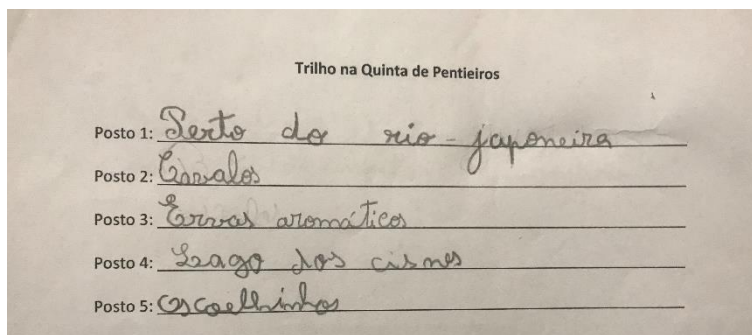 Trilho na Quinta de Pentieiros
Posto 1: Perto do rio - japoneira
Posto 2: Cavalos
Posto 3: Ervas aromáticos
Posto 4: Lago dos cisnes
Posto 5: Os coelhinhos